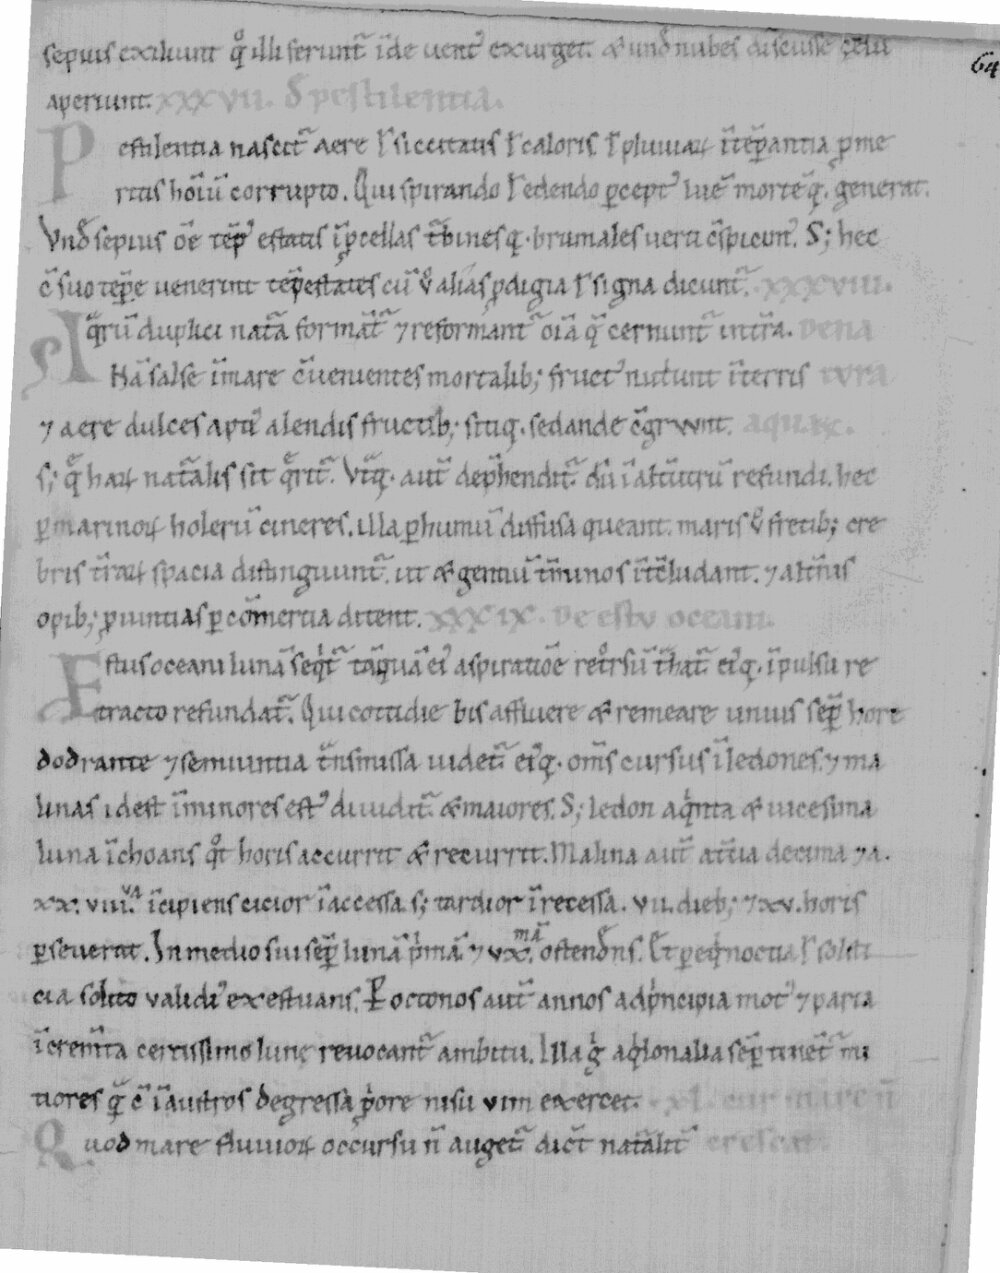 sepius exiliunt qͦ illi ferunt͂ ī́de uent᾽ exurget. & und̄ nubes discusse cęlū
64
aperiunt. xxxvii. đ pestilentia.
Pestilentia nascit͂ Aere ł siccitatis ł caloris ł pluuiaꝝ ītēꝑantia ꝓ me
ritis hoīū corrupto. Qui spirando ł edendo ꝑcept᾽ luē mortēq;. generat.
Vnđ sepius oē tēp᾽ estatis ī ꝓcellas t̄bines q; brumales uerti c̄spicim᾽. S; hec
c̄ suo tēꝑe uenerint tēpestates cū ỡ alias ꝓdigia ł signa dicunt͂. xxxviii.
Aq̄rū duplici nat͂a format͂ ⁊ reformant͂ oīa q̄ cernunt͂ intͣ. De na
Nā salse ī mare c̄uenientes mortalib; fruct᾽ nutͥunt ī terris tura
⁊ aere dulces apti᾽ alendis fructib; sitiq; sedande c̄gruunt. aquaꝝ.
S; q̄ haꝝ nat͂alis sit q̄rit͂. Vtͣq; aut̄ dep̄hendit͂ dū ī alt̄utrū refundi. hec
ꝑ marinoꝝ holerū cineres. illa ꝑ humū diffusa queant. maris ỡ fretib; cre
bris t̄raꝝ spacia distinguunt͂. ut & gentiū t̄minos īt̄cludant. ⁊ alt̄ius
opib; ꝓuintias ꝑ com̄ertia ditent. xxxix. De estu oceani.
Estus oceani lunā seqͥt͂ tāquā ei᾽ aspiratiōe ret͂orsū t͂hat͂ ei᾽q; īpulsu re
tracto refundat͂. Qui cottidie bis affluere & remeare unius sēꝑ hore
dodrante ⁊ semiuntia t̄nsmissa uidet͂ ei᾽q; om̄s cursus ī ledones. ⁊ ma
linas id est ī minores est᾽ diuidit͂ & maiores. S; ledon a qͥnta & uicesima
luna īchoans qͦt horis accurrit & recurrit. Malina aut̄ a t̄tia decima ⁊ a.
xx. viii.ᵛᵃ īcipiens cicior ī accessa. s; tardior ī recessa. vii. dieb; ⁊ xv. horis
ꝑseuerat. In medio sui sēꝑ lunā pͥmā ⁊ vx.ᵐᵃ ostendēns. Et ꝑ eqͥnoctia ł solsti
cia solito validi᾽ exestuans. Ꝑ octonos aut̄ annos ad pͥncipia mot᾽ ⁊ paria
īcrem̄ta certissimo lunę reuocant͂ ambitu. Illa gͥ aqͥlonalia sēꝑ tinet͂ mi
tiores q̄ c̄ ī austros degressa ꝓpͥore nisu vim exercet. xl. cur mare n̄
Quod mare fluuioꝝ occursu n̄ auget͂ dict̄ nat͂alit͂ crescat.